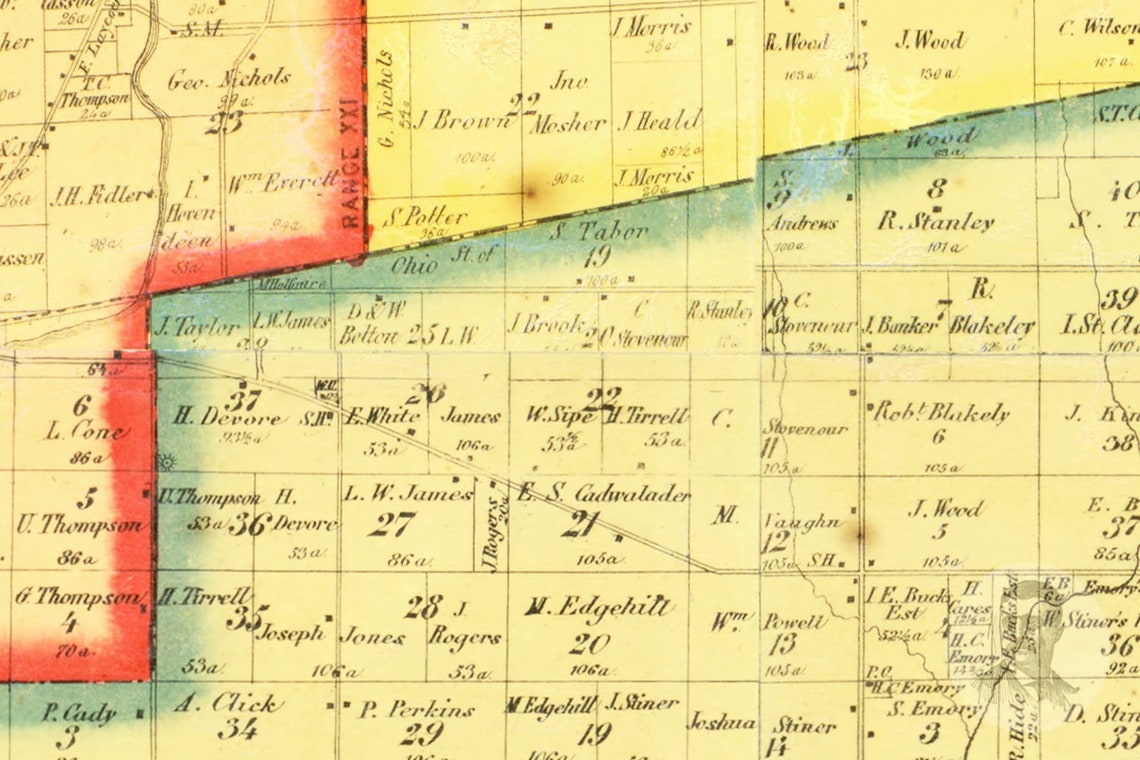 26a
80a
S.M.
F. Laycock
T.C.
Thompson
24a
Geo. Nichols
99a.
23
RANGE XXI
G. Nichols
54a
J Brown
100a.
22
Jno.
Mosher
90a.
J. Morris
36a
J Heald
86½a
J. Morris
20a
R. Wood
103a.
23
J. Wood
130a.
C. Wilson
107a
Lee
26a
J.H. Fidler
98a.
I.
Heven
deen
55a
Wm Everett
84a
S. Potter
36a
Ohio St. of
S. Tabor
19
100a
J. Wood
63a.
S.T.
S.
9
Andrews
100a
8
R. Stanley
101a
40
S. T.
J. Taylor
L.W. James
D & W.
Bolton
25
L.W.
J. Brook
20
C
Stovenour
R. Stanley
10
C.
Stovenour
J. Banker
7
R.
Blakeley
39
I. St. Cla
100a
64a
6
L. Cone
86a
37
H. Devore
93½a
S.H.
26
E. White
53a
James
106a
22
W. Sipe
H. Tirrell
53a
C.
Stovenour
11
105a
Robt. Blakely
6
105a
J. Kin
38
5
U. Thompson
86a
U. Thompson
53a
36
H.
Devore
53a
L. W. James
27
86a
J. Rogers
20a
E. S. Cadwalader
21
105a
M.
Vaughn
12
105a
S.H.
J. Wood
5
105a
E. B
37
85a
G. Thompson
4
70a
H. Tirrell
35
53a
Joseph
106a
Jones
28
J
Rogers
53a
M. Edgehill
20
106a
Wm.
Powell
13
105a
I E. Bucks
Est
52½a
4
P.O.
H.
Cares
12½a
H.C.
Emory
I. E. Bucks Est
E B
6a
Emory
W. Stiner's
36
92a
P. Cady
3
A. Click
34
P. Perkins
29
M Edgehill
J. Stiner
19
Joshua
Stiner
14
H.C Emory
S. Emory
3
R. Hide
22a
D. Stin
35